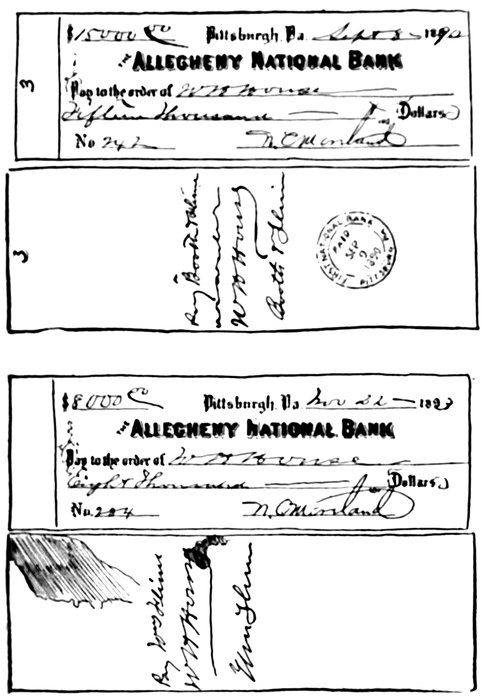 3
$15000 00/ Pittsburgh, Pa. Sept 8 1890
THE ALLEGHENY NATIONAL BANK
Pay to the order of W H House
Fifteen Thousand Dollars
No 242
3
Pay Booth & Flinn
or order
W H House
Booth & Flinn
FIRST NATIONAL BANK
PAID
SEP
9
1890
PITTSBURGH
$8000 00 Pittsburgh, Pa. Nov 22 1893
THE ALLEGHENY NATIONAL BANK
Pay to the order of W H House
Eight Thousand Dollars
No. 204
Pay Wm Flinn
W H House
Wm Flinn